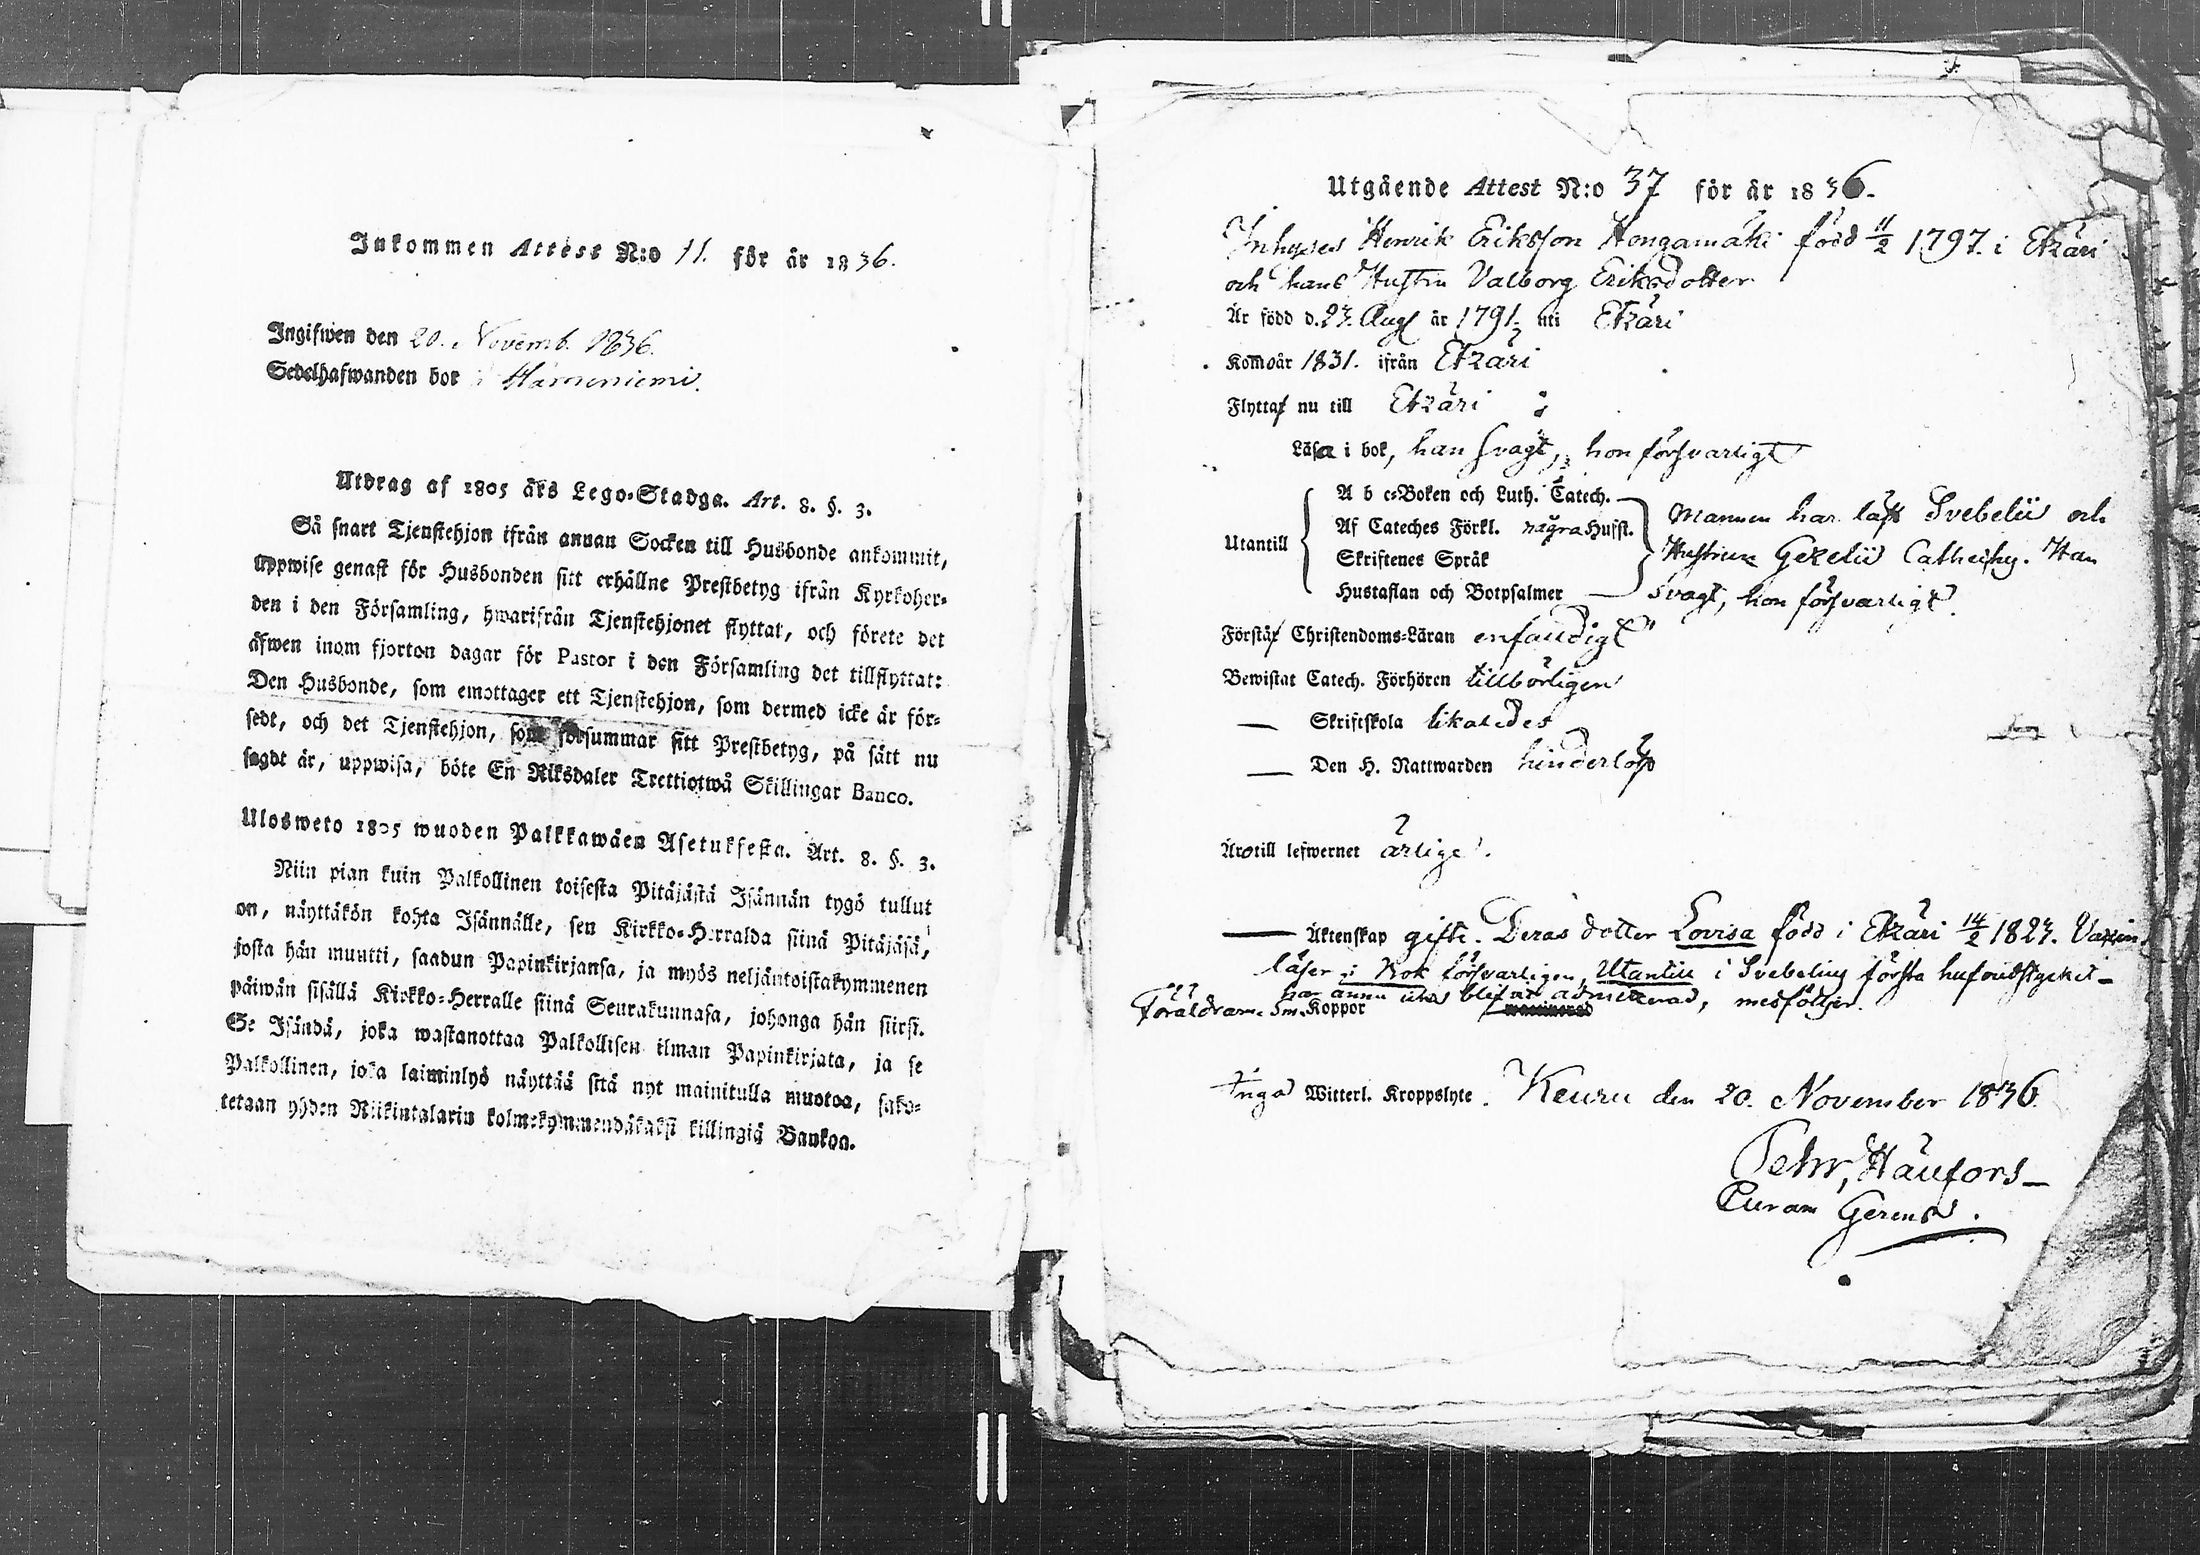 Inkommen Attest N:o 11. för år 1836.
Ingifwen den 20. Novemb. 1836.
Sedelhafwanden bor i Hämeniemi.
Utdrag af 1805 års Lego-Stadga. Art. 8. §. 3.
Så snart Tjenstehjon ifrån annan Socken till Husbonde ankommit,
uppwise genast för Husbonden sitt erhållne Prestbetyg ifrån Kyrkoher-
den i den Församling, hwarifrån Tjenstehjonet flyttat, och förete det
äfwen inom fjorton dagar för Pastor i den Församling det tillflyttat:
Den Husbonde, som emottager ett Tjenstehjon, som dermed icke är för-
sedt, och det Tjenstehjon, som försummar sitt Prestbetyg, på sätt nu
sagdt är, uppwisa, böte En Riksdaler Trettiotwå Skillingar Banco.
Ulosweto 1805 wuoden Palkkawäen Asetuksesta. Art. 8. §. 3.
Niin pian kuin Palkollinen toisesta Pitäjästä Isännän tygö tullut
on, näyttäkön kohta Isännälle, sen Kirkko-Herralda siinä Pitäjäsä,
josta hän muutti, saadun Papinkirjansa, ja myös neljäntoistakymmenen
päiwän sisällä Kirkko-Herralle siinä Seurakunnasa, johonga hän siirsi.
Se Isändä, joka wastanottaa Palkollisen ilman Papinkirjata, ja se
Palkollinen, joka laiminlyö näyttää sitä nyt mainitulla muotoa, sako-
tetaan yhden Riikintalarin kolmekymmendäkaksi killingiä Bankoa.
Utgående Attest N:o 37 för år 1836.
Inhyses Henrik Eriksson Hongamäki född 11/2 1797. i Etzäri
och hans Hustru Valborg Eriksdotter
Är född d. 23. Aug. år 1791. uti Etzäri
Kom år 1831. ifrån Etzäri
Flytta nu till Etzäri
Läsa i bok, han svagt, hon försvarligt
Utantill
A b c-Boken och Luth. Catech.
Af Cateches Förkl. några Hufst.
Skriftenes Språk
Hustaflan och Botpsalmer
Mannen har läst Svebelii och
Hustrun Gezelii Catheches. Han
svagt, hon försvarligt.
Förstå Christendoms-Läran enfaldigt
Bewistat Catech. Förhören tillbörligen
— Skriftskola likaledes
— Den H. Nattwarden hinderlöst
Äro till lefwernet ärlige.
— Äktenskap gifte. Deras dotter Lovisa född i Etzäri 14/2 1823. Vaccin.
läser i Bok försvarligen, Utantill i Svebelius första hufvudstycket —
har ännu icke blifvit admitterad, medföljer.
Föräldrarne Sm. Koppor
Inga Witterl. Kroppslyte. Keuru den 20. November 1836.
Pehr Häufors —
Curam Gerens.